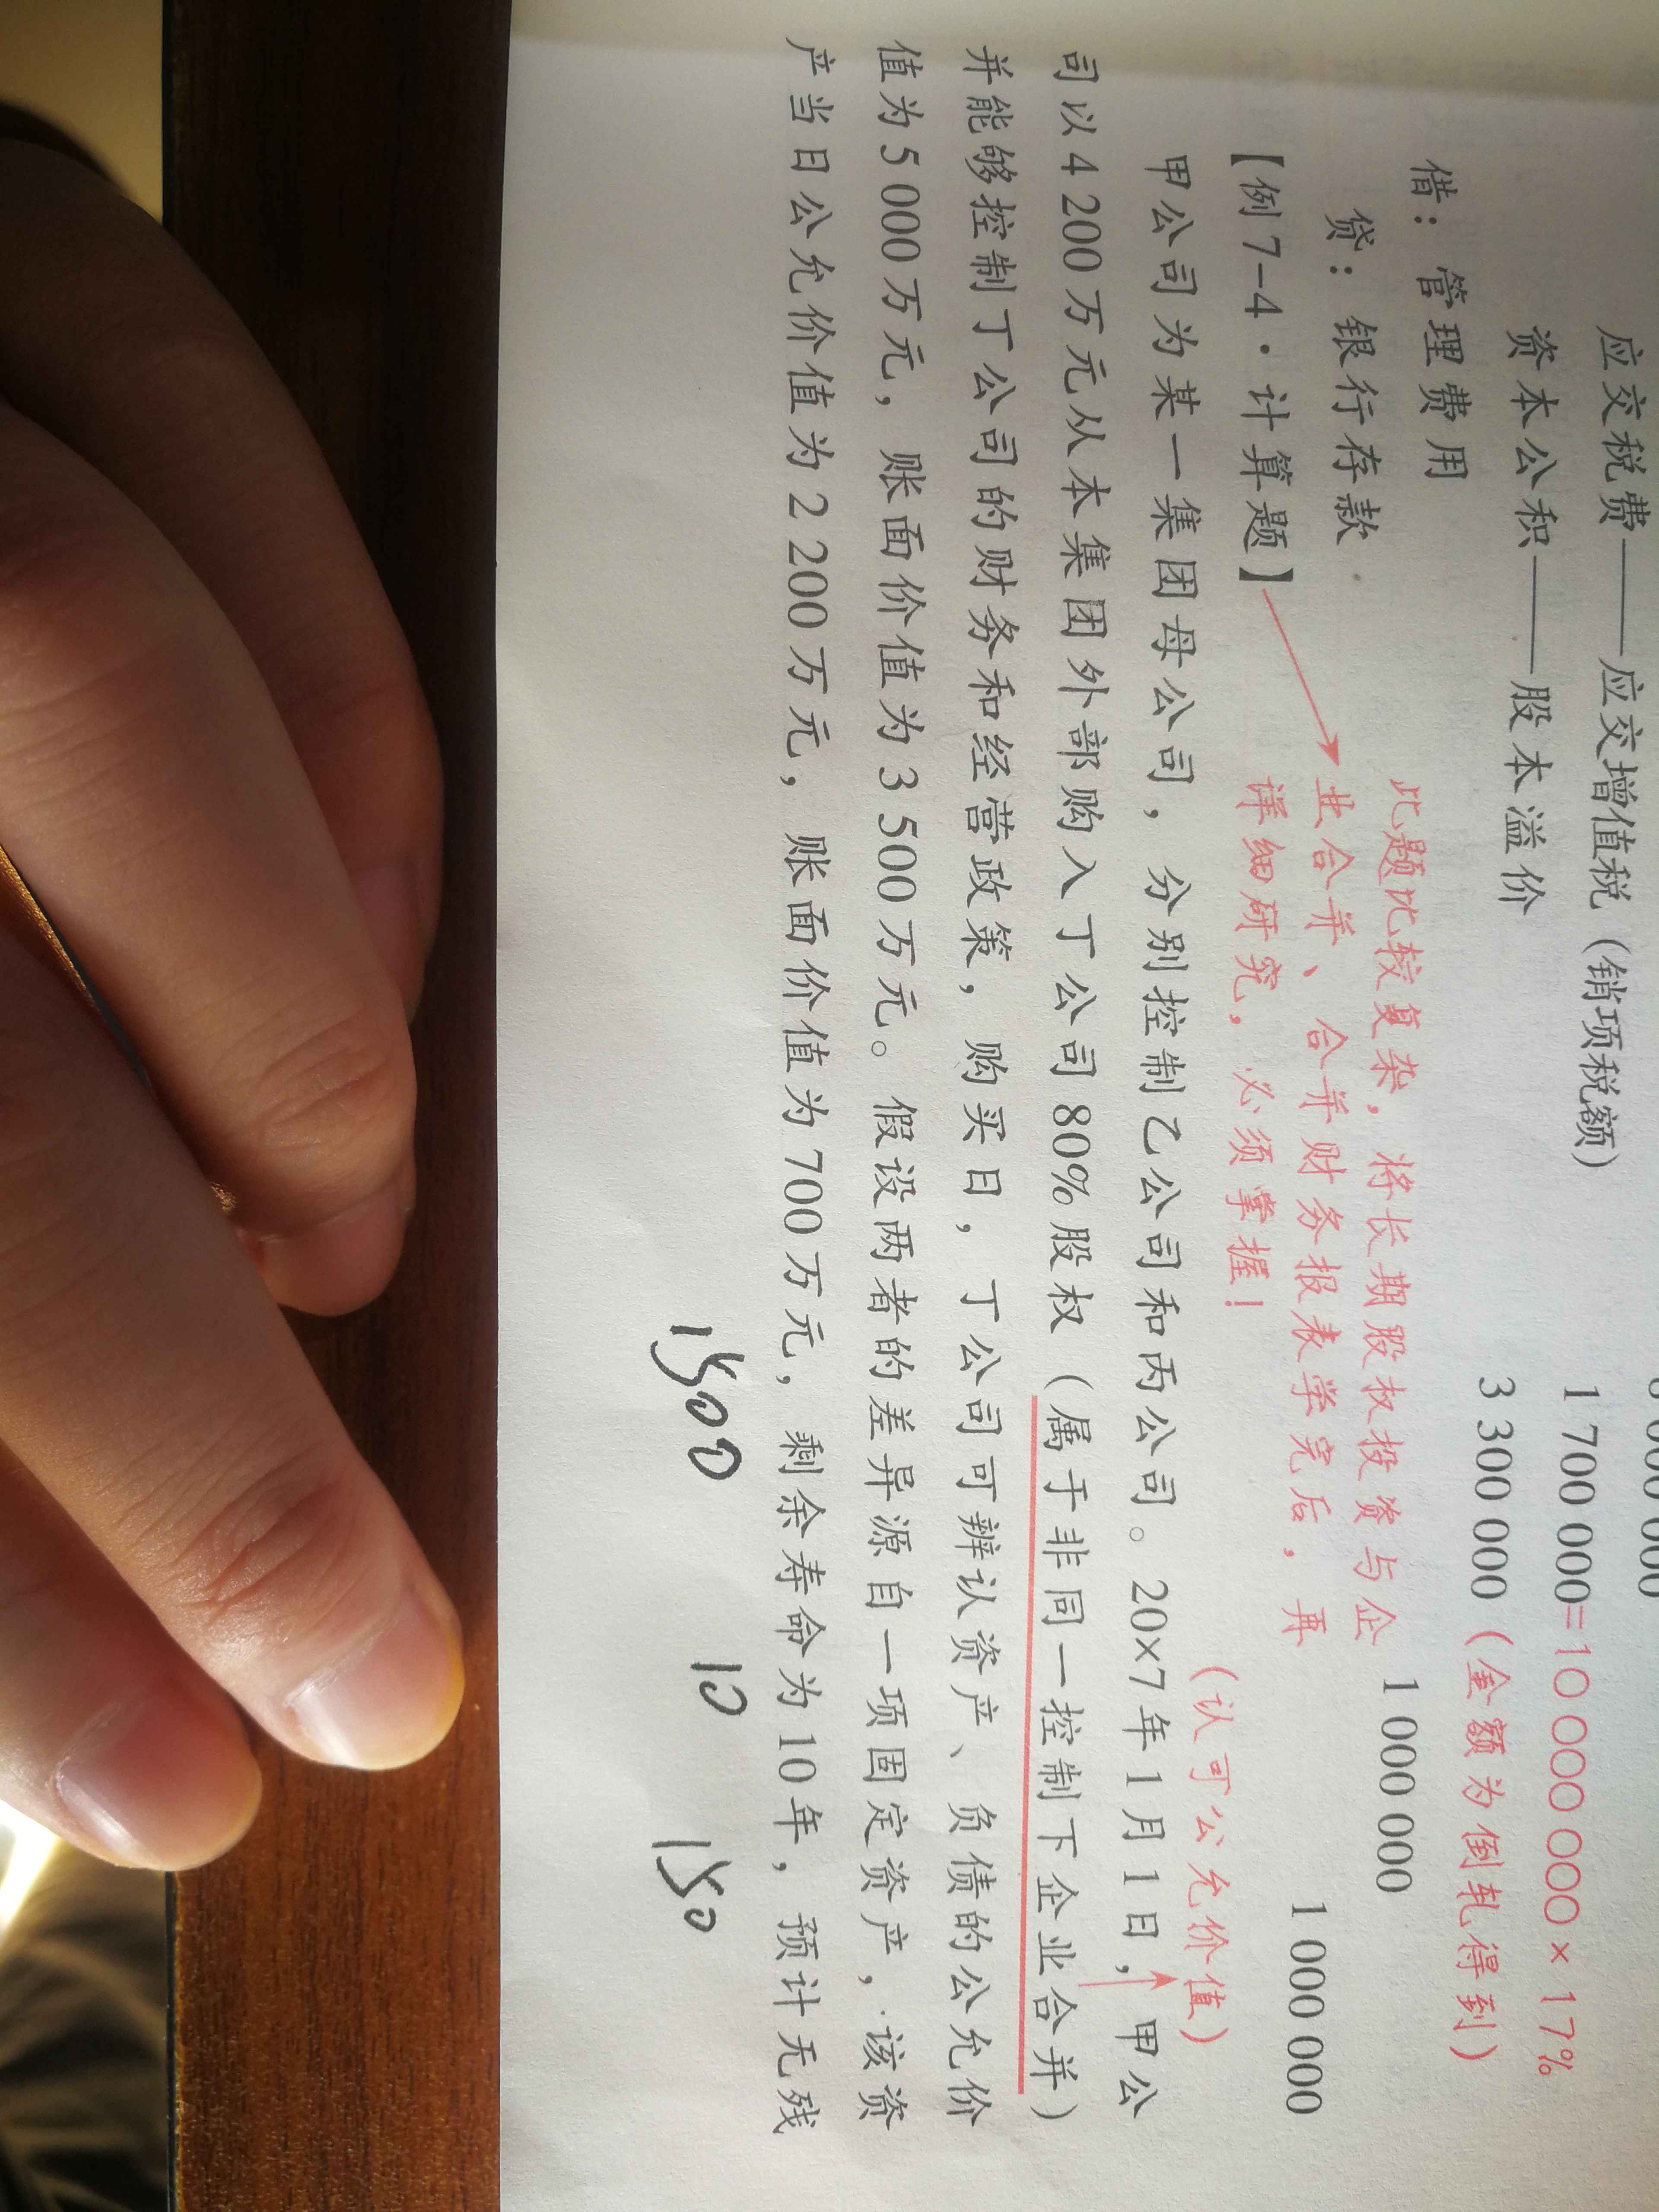 应交税费——应交增值税（销项税额） 1 700 000=10 000 000×17%
资本公积——股本溢价 3 300 000（金额为倒轧得到）
借：管理费用 1 000 000
贷：银行存款 1 000 000
此题比较复杂，将长期股权投资与企
业合并、合并财务报表学完后，再
详细研究，必须掌握！
【例7-4·计算题】
（认可公允价值）
甲公司为某一集团母公司，分别控制乙公司和丙公司。20×7年1月1日，甲公
司以4 200万元从本集团外部购入丁公司80%股权（属于非同一控制下企业合并）
并能够控制丁公司的财务和经营政策，购买日，丁公司可辨认资产、负债的公允价
值为5 000万元，账面价值为3 500万元。假设两者的差异源自一项固定资产，该资
产当日公允价值为2 200万元，账面价值为700万元，剩余寿命为10年，预计无残
1500 10 150